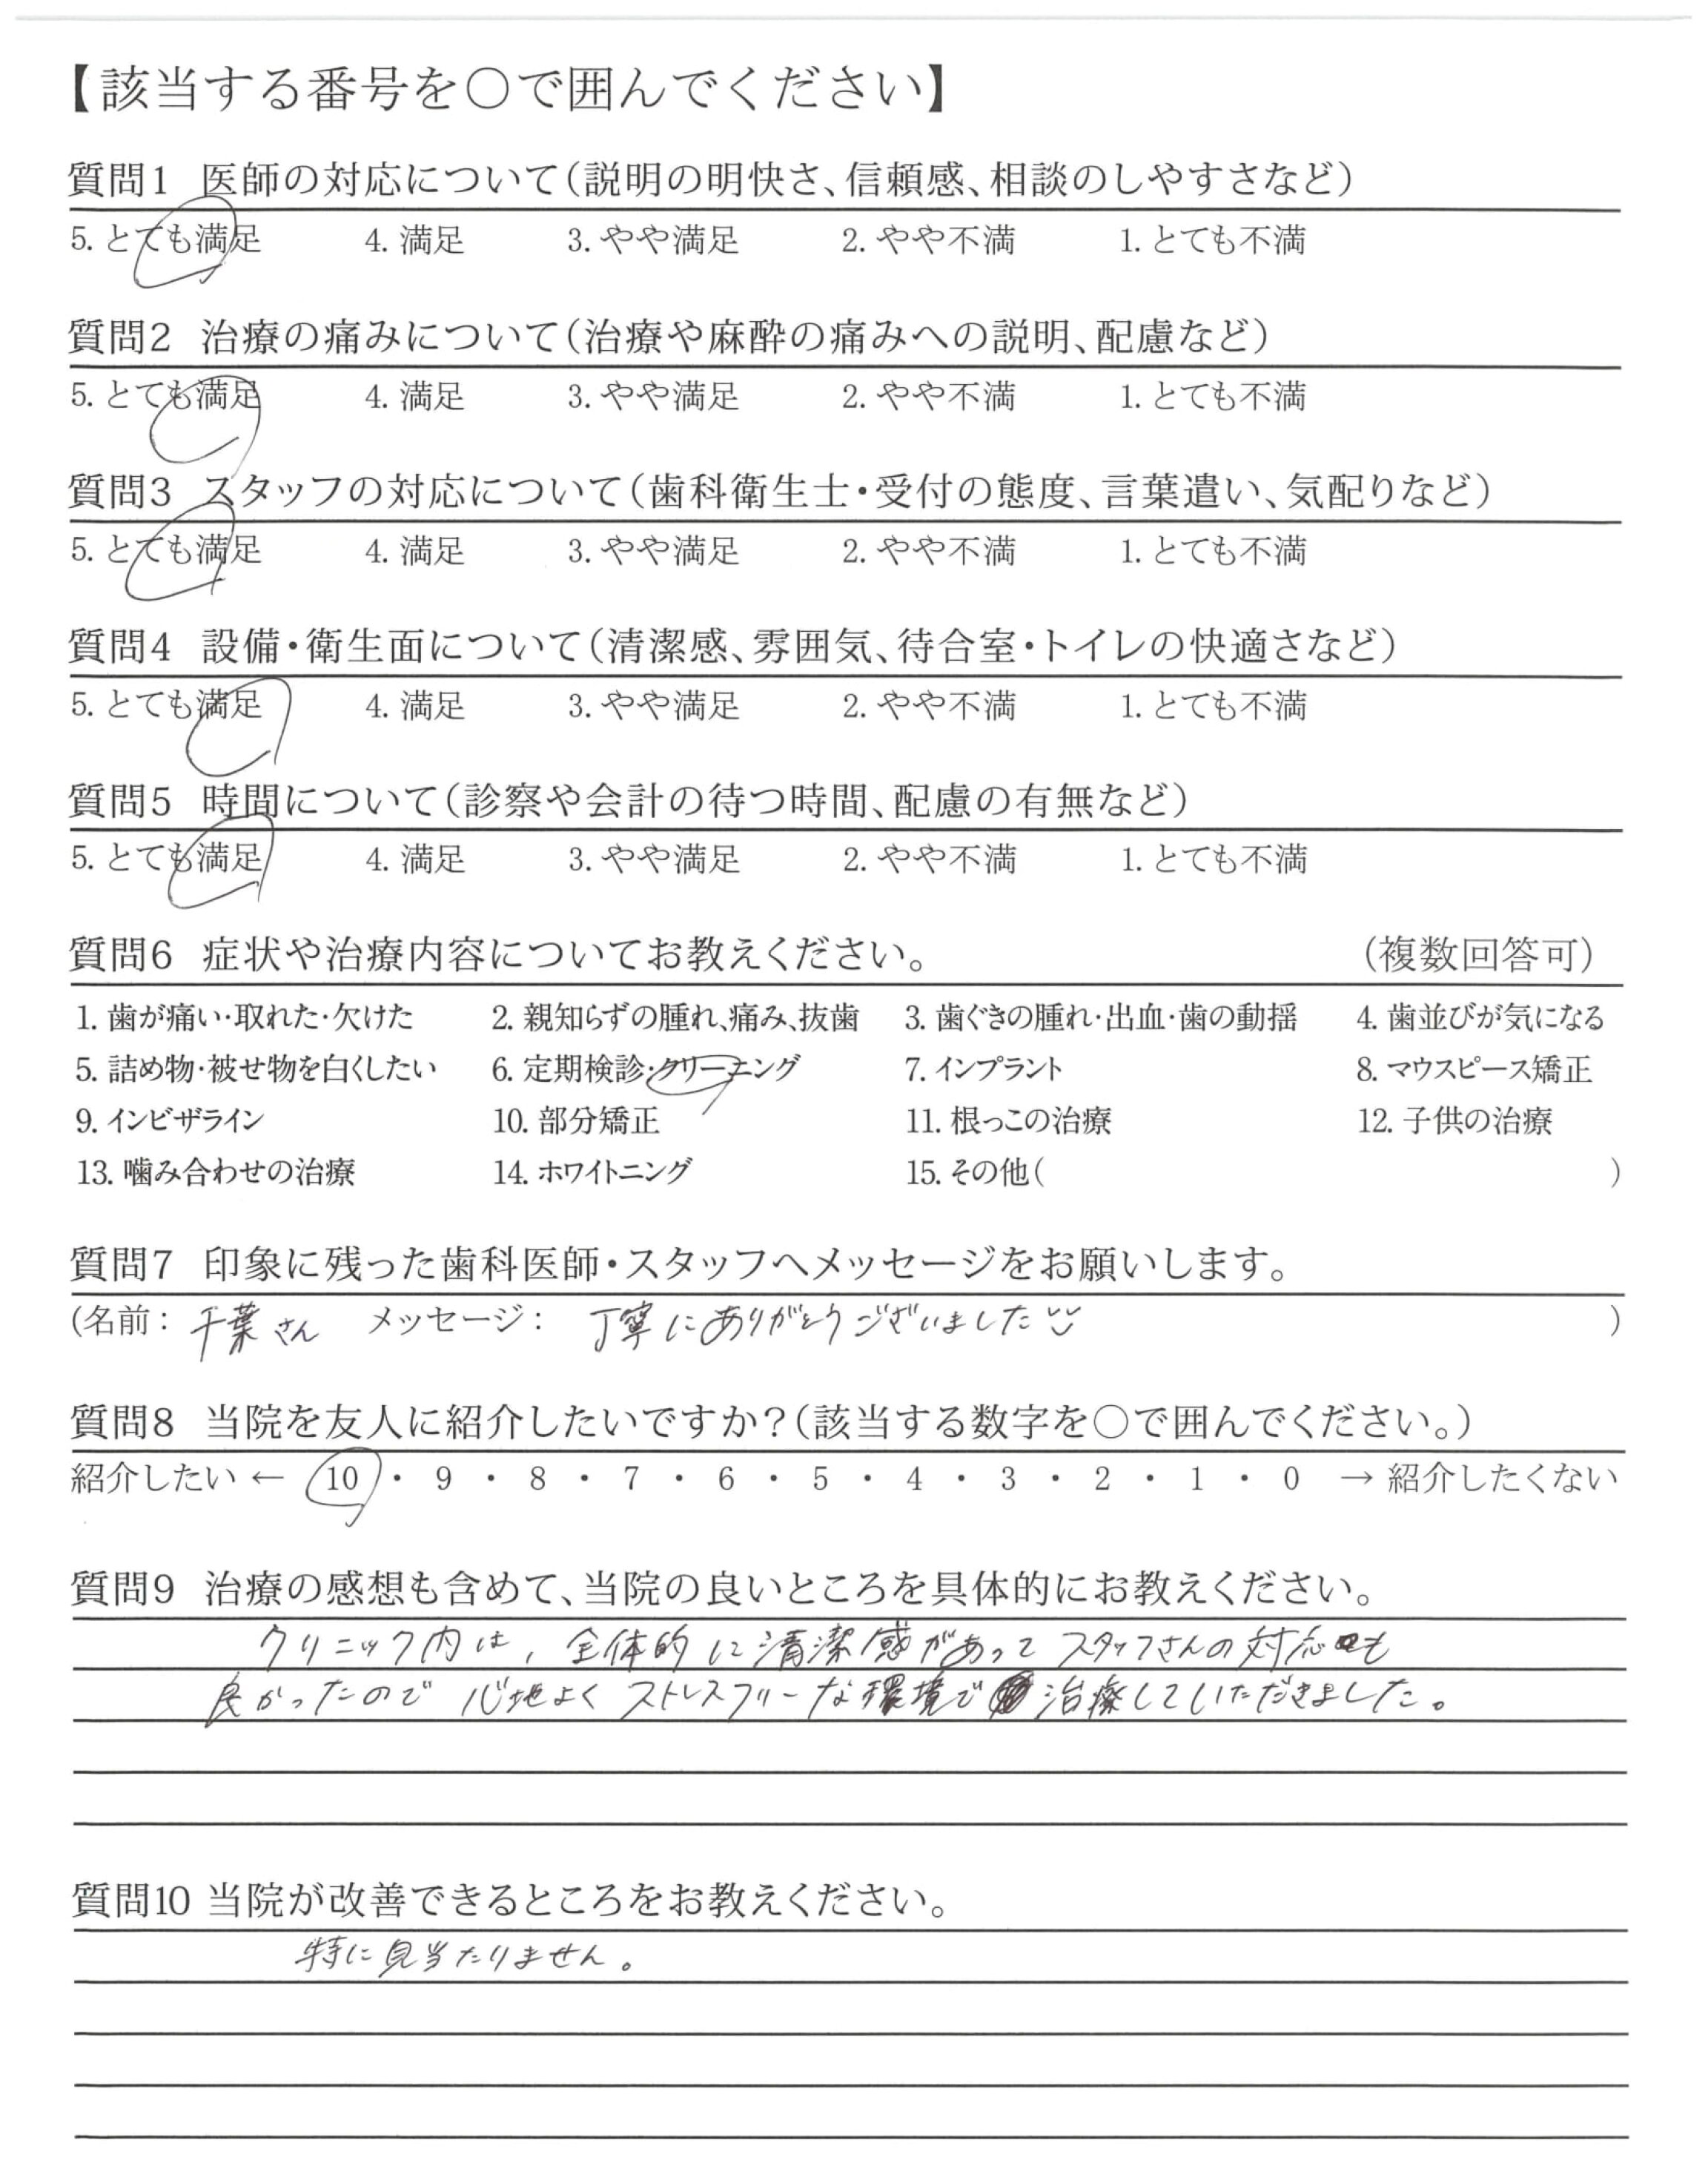 【該当する番号を○で囲んでください】
質問1 医師の対応について(説明の明快さ、信頼感、相談のしやすさなど)
5. とても満足 4. 満足 3. やや満足 2. やや不満 1. とても不満
質問2 治療の痛みについて(治療や麻酔の痛みへの説明、配慮など)
5. とても満足 4. 満足 3. やや満足 2. やや不満 1. とても不満
質問3 スタッフの対応について(歯科衛生士・受付の態度、言葉遣い、気配りなど)
5. とても満足 4. 満足 3. やや満足 2. やや不満 1. とても不満
質問4 設備・衛生面について(清潔感、雰囲気、待合室・トイレの快適さなど)
5. とても満足 4. 満足 3. やや満足 2. やや不満 1. とても不満
質問5 時間について(診察や会計の待つ時間、配慮の有無など)
5. とても満足 4. 満足 3. やや満足 2. やや不満 1. とても不満
質問6 症状や治療内容についてお教えください。 (複数回答可)
1. 歯が痛い・取れた・欠けた 2. 親知らずの腫れ、痛み、抜歯 3. 歯ぐきの腫れ・出血・歯の動揺 4. 歯並びが気になる
5. 詰め物・被せ物を白くしたい 6. 定期検診・クリーニング 7. インプラント 8. マウスピース矯正
9. インビザライン 10. 部分矯正 11. 根っこの治療 12. 子供の治療
13. 噛み合わせの治療 14. ホワイトニング 15. その他( )
質問7 印象に残った歯科医師・スタッフへメッセージをお願いします。
(名前: 千葉さん メッセージ: 丁寧にありがとうございました )
質問8 当院を友人に紹介したいですか?(該当する数字を○で囲んでください。)
紹介したい ← 10 ・ 9 ・ 8 ・ 7 ・ 6 ・ 5 ・ 4 ・ 3 ・ 2 ・ 1 ・ 0 → 紹介したくない
質問9 治療の感想も含めて、当院の良いところを具体的にお教えください。
クリニック内は、全体的に清潔感があってスタッフさんの対応も
良かったので心地よくストレスフリーな環境で治療していただきました。
質問10 当院が改善できるところをお教えください。
特に見当たりません。